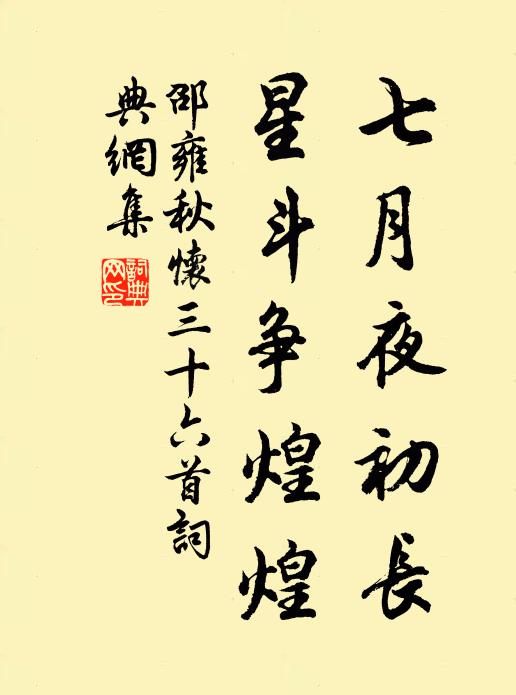 七月夜初長
星斗争煌煌
邵雍秋懷三十六首詞
典網集
詞典網印